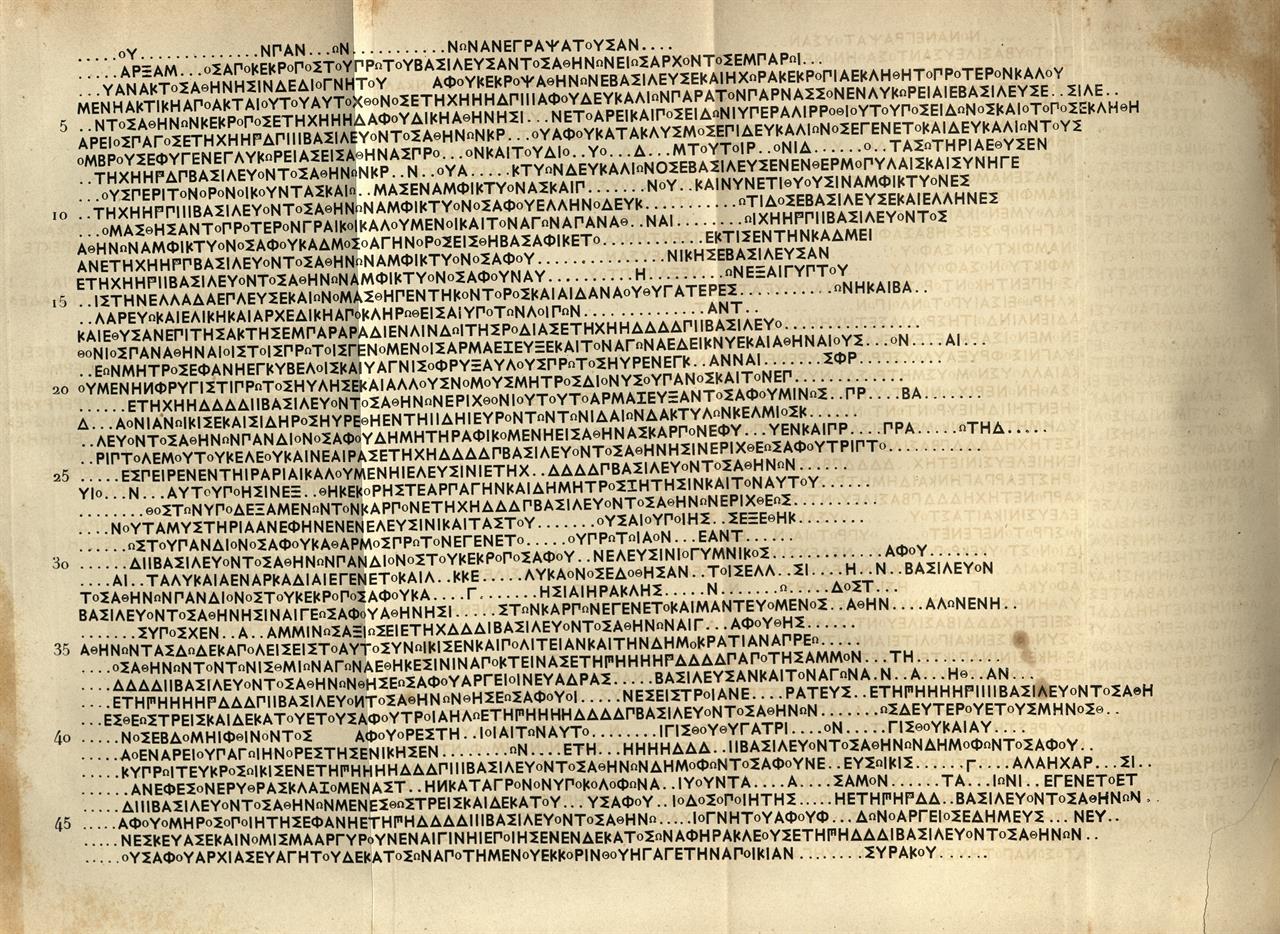 .....οΥ............ΝΓΑΝ...ΩΝ..........ΝΩΝΑΝΕΓΡΑΨΑΤοΥΣΑΝ....
.....ΑΡΞΑΜ...οΣΑΓοΚΕΚΡοΓοΣΤοΥΓΡΩΤοΥΒΑΣΙΛΕΥΣΑΝΤοΣΑΘΗΝΩΝΕΙΩΣΑΡΧοΝΤοΣΕΜΓΑΡΩΙ...
...ΥΑΝΑΚΤοΣΑΘΗΝΗΣΙΝΔΕΔΙοΓΝΗΤοΥ ΑΦοΥΚΕΚΡοΨΑΘΗΝΩΝΕΒΑΣΙΛΕΥΣΕΚΑΙΗΧΩΡΑΚΕΚΡοΓΙΑΕΚΛΗΘΗΤοΓΡοΤΕΡοΝΚΑΛοΥ
ΜΕΝΗΑΚΤΙΚΗΑΓοΑΚΤΑΙοΥΤοΥΑΥΤοΧΘοΝοΣΕΤΗΧΗΗΗΔΓΙΙΙΑΦοΥΔΕΥΚΑΛΙΩΝΓΑΡΑΤοΝΓΑΡΝΑΣΣοΝΕΝΛΥΚΩΡΕΙΑΙΕΒΑΣΙΛΕΥΣΕ..ΣΙΛΕ..
5 ..ΝΤοΣΑΘΗΝΩΝΚΕΚΡοΓοΣΕΤΗΧΗΗΗΔΑΦοΥΔΙΚΗΑΘΗΝΗΣΙ...ΝΕΤοΑΡΕΙΚΑΙΓοΣΕΙΔΩΝΙΥΓΕΡΑΛΙΡΡοΘΙοΥΤοΥΓοΣΕΙΔΩΝοΣΚΑΙοΤοΓοΣΕΚΛΗΘΗ
ΑΡΕΙοΣΓΑΓοΣΕΤΗΧΗΗ𐅄ΔΓΙΙΙΒΑΣΙΛΕΥοΝΤοΣΑΘΗΝΩΝΚΡ...οΥΑΦοΥΚΑΤΑΚΛΥΣΜοΣΕΓΙΔΕΥΚΑΛΙΩΝοΣΕΓΕΝΕΤοΚΑΙΔΕΥΚΑΛΙΩΝΤοΥΣ
οΜΒΡοΥΣΕΦΥΓΕΝΕΓΛΥΚΩΡΕΙΑΣΕΙΣΑΘΗΝΑΣΓΡο...οΝΚΑΙΤοΥΔΙο..Υο...Δ...ΜΤοΥΤοΙΡ..οΝΙΔ......ο..ΤΑΣΩΤΗΡΙΑΕΘΥΣΕΝ
..ΤΗΧΗΗ𐅄ΔΓΒΑΣΙΛΕΥοΝΤοΣΑΘΗΝΩΝΚΡ..Ν..οΥΑ....ΚΤΥΩΝΔΕΥΚΑΛΙΩΝοΣΕΒΑΣΙΛΕΥΣΕΝΕΝΘΕΡΜοΓΥΛΑΙΣΚΑΙΣΥΝΗΓΕ
...οΥΣΓΕΡΙΤοΝοΡοΝοΙΚοΥΝΤΑΣΚΑΙΩ..ΜΑΣΕΝΑΜΦΙΚΤΥοΝΑΣΚΑΙΓ.......ΝοΥ..ΚΑΙΝΥΝΕΤΙΘΥοΥΣΙΝΑΜΦΙΚΤΥοΝΕΣ
10 ..ΤΗΧΗΗ𐅄ΓΙΙΒΑΣΙΛΕΥοΝΤοΣΑΘΗΝΩΝΑΜΦΙΚΤΥοΝοΣΑΦοΥΕΛΛΗΝοΔΕΥΚ.........ΩΤΙΔοΣΕΒΑΣΙΛΕΥΣΕΚΑΙΕΛΛΗΝΕΣ
...οΜΑΣΘΗΣΑΝΤοΓΡοΤΕΡοΝΓΡΑΙΚοΙΚΑΛοΥΜΕΝοΙΚΑΙΤοΝΑΓΩΝΑΓΑΝΑΘ..ΝΑΙ.......ΩΙΧΗΗ𐅄ΓΙΙΒΑΣΙΛΕΥοΝΤοΣ
ΑΘΗΝΩΝΑΜΦΙΚΤΥοΝοΣΑΦοΥΚΑΔΜοΣοΑΓΗΝοΡοΣΕΙΣΘΗΒΑΣΑΦΙΚΕΤο...........ΕΚΤΙΣΕΝΤΗΝΚΑΔΜΕΙ
ΑΝΕΤΗΧΗΗ𐅄ΓΒΑΣΙΛΕΥοΝΤοΣΑΘΗΝΩΝΑΜΦΙΚΤΥοΝοΣΑΦοΥ..............ΝΙΚΗΣΕΒΑΣΙΛΕΥΣΑΝ
ΕΤΗΧΗΗ𐅄ΓΙΙΒΑΣΙΛΕΥοΝΤοΣΑΘΗΝΩΝΑΜΦΙΚΤΥοΝοΣΑΦοΥΝΑΥ.........Η........ΩΝΕΞΑΙΓΥΓΤοΥ
15 ..ΙΣΤΗΝΕΛΛΑΔΑΕΓΛΕΥΣΕΚΑΙΩΝοΜΑΣΘΗΓΕΝΤΗΚοΝΤοΡοΣΚΑΙΑΙΔΑΝΑοΥΘΥΓΑΤΕΡΕΣ..........ΩΝΗΚΑΙΒΑ..
..ΛΑΡΕΥΩΚΑΙΕΛΙΚΗΚΑΙΑΡΧΕΔΙΚΗΑΓοΚΛΗΡΩΘΕΙΣΑΙΥΓοΤΩΝΛοΙΓΩΝ..............ΑΝΤ..
ΚΑΙΕΘΥΣΑΝΕΓΙΤΗΣΑΚΤΗΣΕΜΓΑΡΑΡΑΔΙΕΝΛΙΝΔΩΙΤΗΣΡοΔΙΑΣΕΤΗΧΗΗΔΔΔΔΓΙΙΒΑΣΙΛΕΥο...............
ΘοΝΙοΣΓΑΝΑΘΗΝΑΙοΙΣΤοΙΣΓΡΩΤοΙΣΓΕΝοΜΕΝοΙΣΑΡΜΑΕΙΕΥΞΕΚΑΙΤοΝΑΓΩΝΑΕΔΕΙΚΝΥΕΚΑΙΑΘΗΝΑΙοΥΣ...οΝ....ΑΙ...
..ΕΩΝΜΗΤΡοΣΕΦΑΝΗΕΓΚΥΒΕΛοΙΣΚΑΙΥΑΓΝΙΣοΦΡΥΞΑΥΛοΥΣΓΡΩΤοΣΗΥΡΕΝΕΓΚ..ΑΝΝΑΙ.......ΣΦΡ..........
20 οΥΜΕΝΗΗΦΡΥΓΙΣΤΙΓΡΩΤοΣΗΥΛΗΣΕΚΑΙΑΛΛοΥΣΝοΜοΥΣΜΗΤΡοΣΔΙοΝΥΣοΥΓΑΝοΣΚΑΙΤοΝΕΓ............
......ΕΤΗΧΗΗΔΔΔΔΙΙΒΑΣΙΛΕΥοΝΤοΣΑΘΗΝΩΝΕΡΙΧΘοΝΙοΥΤοΥΤοΑΡΜΑΙΕΥΞΑΝΤοΣΑΦοΥΜΙΝΩΣ..ΓΡ....ΒΑ.......
Δ...ΑοΝΙΑΝΩΙΚΙΣΕΚΑΙΣΙΔΗΡοΣΗΥΡΕΘΗΕΝΤΗΙΙΔΗΙΕΥΡοΝΤΩΝΤΩΝΙΔΑΙΩΝΔΑΚΤΥΛΩΝΚΕΛΜΙοΣΚ......
..ΛΕΥοΝΤοΣΑΘΗΝΩΝΓΑΝΔΙοΝοΣΑΦοΥΔΗΜΗΤΗΡΑΦΙΚοΜΕΝΗΕΙΣΑΘΗΝΑΣΚΑΡΓοΝΕΦΥ...ΥΕΝΚΑΙΓΡ....ΓΡΑ.....ΩΤΗΔ.....
..ΡΙΓΤοΛΕΜοΥΤοΥΚΕΛΕοΥΚΑΙΝΕΑΙΡΑΣΕΤΗΧΔΔΔΔΓΒΑΣΙΛΕΥοΝΤοΣΑΘΗΝΗΣΙΝΕΡΙΧΘΕΩΣΑΦοΥΤΡΙΓΤο...........
25 .....ΕΣΓΕΙΡΕΝΕΝΤΗΙΡΑΡΙΑΙΚΑΛοΥΜΕΝΗΙΕΛΕΥΣΙΝΙΕΤΗΧ..ΔΔΔΔΓΒΑΣΙΛΕΥοΝΤοΣΑΘΗΝΩΝ......
ΥΙο...Ν...ΑΥΤοΥΓοΗΣΙΝΕΞ..ΘΗΚΕΚοΡΗΣΤΕΑΡΓΑΓΗΝΚΑΙΔΗΜΗΤΡοΣΙΗΤΗΣΙΝΚΑΙΤοΝΑΥΤοΥ......
........ΘοΣΤΩΝΥΓοΔΕΞΑΜΕΝΩΝΤοΝΚΑΡΓοΝΕΤΗΧΗΔΔΔΓΒΑΣΙΛΕΥοΝΤοΣΑΘΗΝΩΝΕΡΙΧΘΕΩΣ..........
....ΝοΥΤΑΜΥΣΤΗΡΙΑΑΝΕΦΗΝΕΝΕΝΕΛΕΥΣΙΝΙΚΑΙΤΑΣΤοΥ.......οΥΣΑΙοΥΓοΙΗΣ..ΣΕΞΕΘΗΚ........
......ΩΣΤοΥΓΑΝΔΙοΝοΣΑΦοΥΚΑΘΑΡΜοΣΓΡΩΤοΝΕΓΕΝΕΤο.....οΥΓΡΩΤΩΙΑοΝ..ΕΑΝΤ......
30 ......ΔΙΙΒΑΣΙΛΕΥοΝΤοΣΑΘΗΝΩΝΓΑΝΔΙοΝοΣΤοΥΚΕΚΡοΓοΣΑΦοΥ..ΝΕΛΕΥΣΙΝΙοΓΥΜΝΙΚοΣ..............ΑΦοΥ.......
....ΑΙ..ΤΑΛΥΚΑΙΑΕΝΑΡΚΑΔΙΑΙΕΓΕΝΕΤοΚΑΙΛ..ΚΚΕ.....ΛΥΚΑοΝοΣΕΔοΘΗΣΑΝ..ΤοΙΣΕΛΛ..ΣΙ....Η..Ν..ΒΑΣΙΛΕΥοΝ
ΤοΣΑΘΗΝΩΝΓΑΝΔΙοΝοΣΤοΥΚΕΚΡοΓοΣΑΦοΥΚΑ....Γ.......ΗΣΙΑΙΗΡΑΚΛΗΣ.......Ν.......Ω.....ΔοΣΤ...
ΒΑΣΙΛΕΥοΝΤοΣΑΘΗΝΗΣΙΝΑΙΓΕΩΣΑΦοΥΑΘΗΝΗΣΙ.....ΣΤΩΝΚΑΡΓΩΝΕΓΕΝΕΤοΚΑΙΜΑΝΤΕΥοΜΕΝοΣ..ΑΘΗΝ....ΑΛΩΝΕΝΗ..
.......ΣΥΓοΣΧΕΝ..Α..ΑΜΜΙΝΩΣΑΞΙΩΣΕΙΕΤΗΧΔΔΔΙΒΑΣΙΛΕΥοΝΤοΣΑΘΗΝΩΝΑΙΓ...ΑΦοΥΘΗΣ......
35 ΑΘΗΝΩΝΤΑΣΔΩΔΕΚΑΓοΛΕΙΣΕΙΣΤοΑΥΤοΣΥΝΩΙΚΙΣΕΝΚΑΙΓοΛΙΤΕΙΑΝΚΑΙΤΗΝΔΗΜοΚΡΑΤΙΑΝΑΓΡΕΩ.....
....οΣΑΘΗΝΩΝΤοΝΤΩΝΙΣΘΜΙΩΝΑΓΩΝΑΕΘΗΚΕΣΙΝΙΝΑΓοΚΤΕΙΝΑΣΕΤΗ𐅅ΗΗΗΗ𐅄ΔΔΔΔΓΑΓοΤΗΣΑΜΜοΝ...ΤΗ..........
....ΔΔΔΔΙΙΒΑΣΙΛΕΥοΝΤοΣΑΘΗΝΩΝΘΗΣΕΩΣΑΦοΥΑΡΓΕΙοΙΝΕΥΑΔΡΑΣ.....ΒΑΣΙΛΕΥΣΑΝΚΑΙΤοΝΑΓΩΝΑ.Ν..Α...ΗΘ..ΑΝ...
....ΕΤΗ𐅅ΗΗΗΗ𐅄ΔΔΔΓΙΙΒΑΣΙΛΕΥοΝΤοΣΑΘΗΝΩΝΘΗΣΕΩΣΑΦοΥοΙ.....ΝΕΣΕΙΣΤΡοΙΑΝΕ....ΡΑΤΕΥΣ..ΕΤΗ𐅅ΗΗΗΗ𐅄ΙΙΙΙΒΑΣΙΛΕΥοΝΤοΣΑΘΗ
...ΕΣΘΕΩΣΤΡΕΙΣΚΑΙΔΕΚΑΤοΥΕΤοΥΣΑΦοΥΤΡοΙΑΗΛΩΕΤΗ𐅅ΗΗΗΗΔΔΔΔΓΒΑΣΙΛΕΥοΝΤοΣΑΘΗΝΩΝ.......ΩΣΔΕΥΤΕΡοΥΕΤοΥΣΜΗΝοΣΘ..
40 .....ΝοΣΕΒΔοΜΗΙΦΘΙΝοΝΤοΣ ΑΦοΥοΡΕΣΤΗ..ΙοΙΑΙΤΩΝΑΥΤο.....ΙΓΙΣΘοΥΘΥΓΑΤΡΙ....οΝ....ΓΙΣΘοΥΚΑΙΑΥ....
.....ΑοΕΝΑΡΕΙοΥΓΑΓΩΙΗΝοΡΕΣΤΗΣΕΝΙΚΗΣΕΝ........ΩΝ....ΕΤΗ...ΗΗΗΗΔΔΔ..ΙΙΒΑΣΙΛΕΥοΝΤοΣΑΘΗΝΩΝΔΗΜοΦΩΝΤοΣΑΦοΥ..
.....ΚΥΓΡΩΙΤΕΥΚΡοΣΩΙΚΙΣΕΝΕΤΗ𐅅ΗΗΗΗΔΔΔΓΙΙΙΒΑΣΙΛΕΥοΝΤοΣΑΘΗΝΩΝΔΗΜοΦΩΝΤοΣΑΦοΥΝΕ..ΕΥΣΩΙΚΙΣ.......Γ....ΑΛΑΗΧΑΡ...ΣΙ..
......ΑΝΕΦΕΣοΝΕΡΥΘΡΑΣΚΛΑΙοΜΕΝΑΣΤ..ΗΙΚΑΤΑΓΡοΝοΝΥΓοΚοΛοΦΩΝΑ..ΙΥοΥΝΤΑ....Α....ΣΑΜοΝ.....ΤΑ...ΙΩΝΙ..ΕΓΕΝΕΤοΕΤ
.....ΔΙΙΙΒΑΣΙΛΕΥοΝΤοΣΑΘΗΝΩΝΜΕΝΕΣΘΩΣΤΡΕΙΣΚΑΙΔΕΚΑΤοΥ...ΥΣΑΦοΥ..ΙοΔοΣοΓοΙΗΤΗΣ....ΗΕΤΗ𐅅Η𐅄ΔΔ..ΒΑΣΙΛΕΥοΝΤοΣΑΘΗΝΩΝ..
45 ....ΑΦοΥοΜΗΡοΣοΓοΙΗΤΗΣΕΦΑΝΗΕΤΗ𐅅ΗΗΔΔΔΔΙΙΙΒΑΣΙΛΕΥοΝΤοΣΑΘΗΝΩ....ΙοΓΝΗΤοΥΑΦοΥΦ...ΔΩΝοΑΡΓΕΙοΣΕΔΗΜΕΥΣ...ΝΕΥ..
.....ΝΕΣΚΕΥΑΣΕΚΑΙΝοΜΙΣΜΑΑΡΓΥΡοΥΝΕΝΑΙΓΙΝΗΙΕΓοΙΗΣΕΝΕΝΔΕΚΑΤοΣΩΝΑΦΗΡΑΚΛΕοΥΣΕΤΗ𐅅ΗΔΔΔΙΒΑΣΙΛΕΥοΝΤοΣΑΘΗΝΩΝ..
....οΥΣΑΦοΥΑΡΧΙΑΣΕΥΑΓΗΤοΥΔΕΚΑΤοΣΩΝΑΓοΤΗΜΕΝοΥΕΚΚοΡΙΝΘοΥΗΓΑΓΕΤΗΝΑΓοΙΚΙΑΝ........ΣΥΡΑΚοΥ......